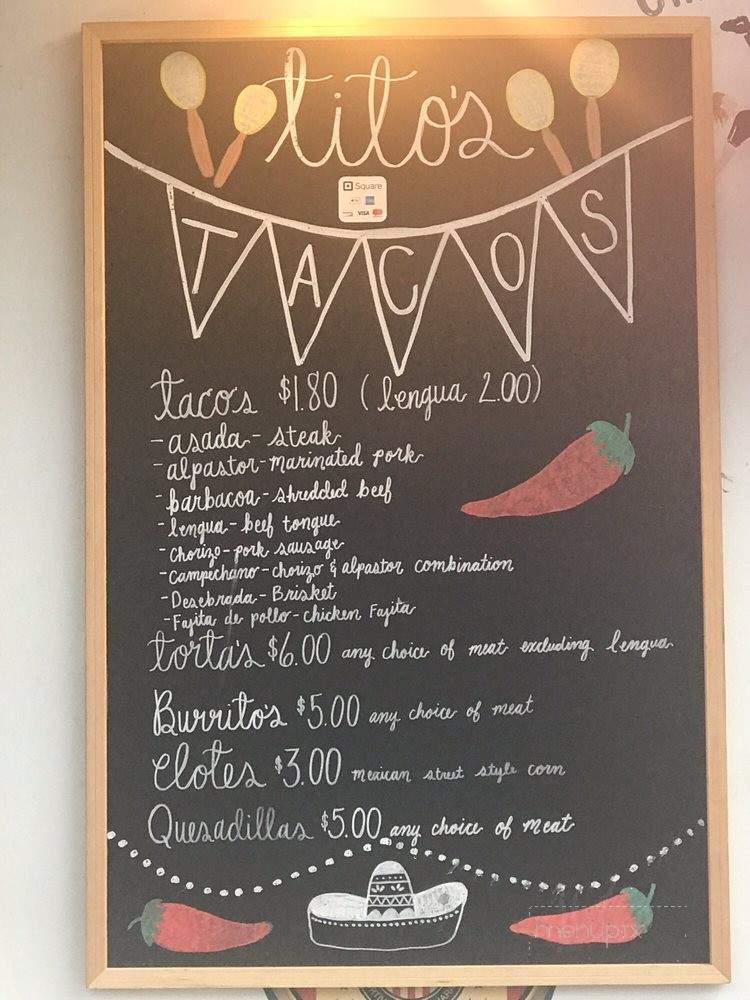 tito's
Square
VISA
TACOS
tacos $1.80 (lengua 2.00)
- asada - steak
- alpastor - marinated pork
- barbacoa - shredded beef
- lengua - beef tongue
- chorizo - pork sausage
- campechano - chorizo & alpastor combination
- Desebrada - Brisket
- Fajita de pollo - chicken Fajita
torta's $6.00 any choice of meat excluding lengua
Burrito's $5.00 any choice of meat
elotes $3.00 mexican street style corn
Quesadillas $5.00 any choice of meat
menupix